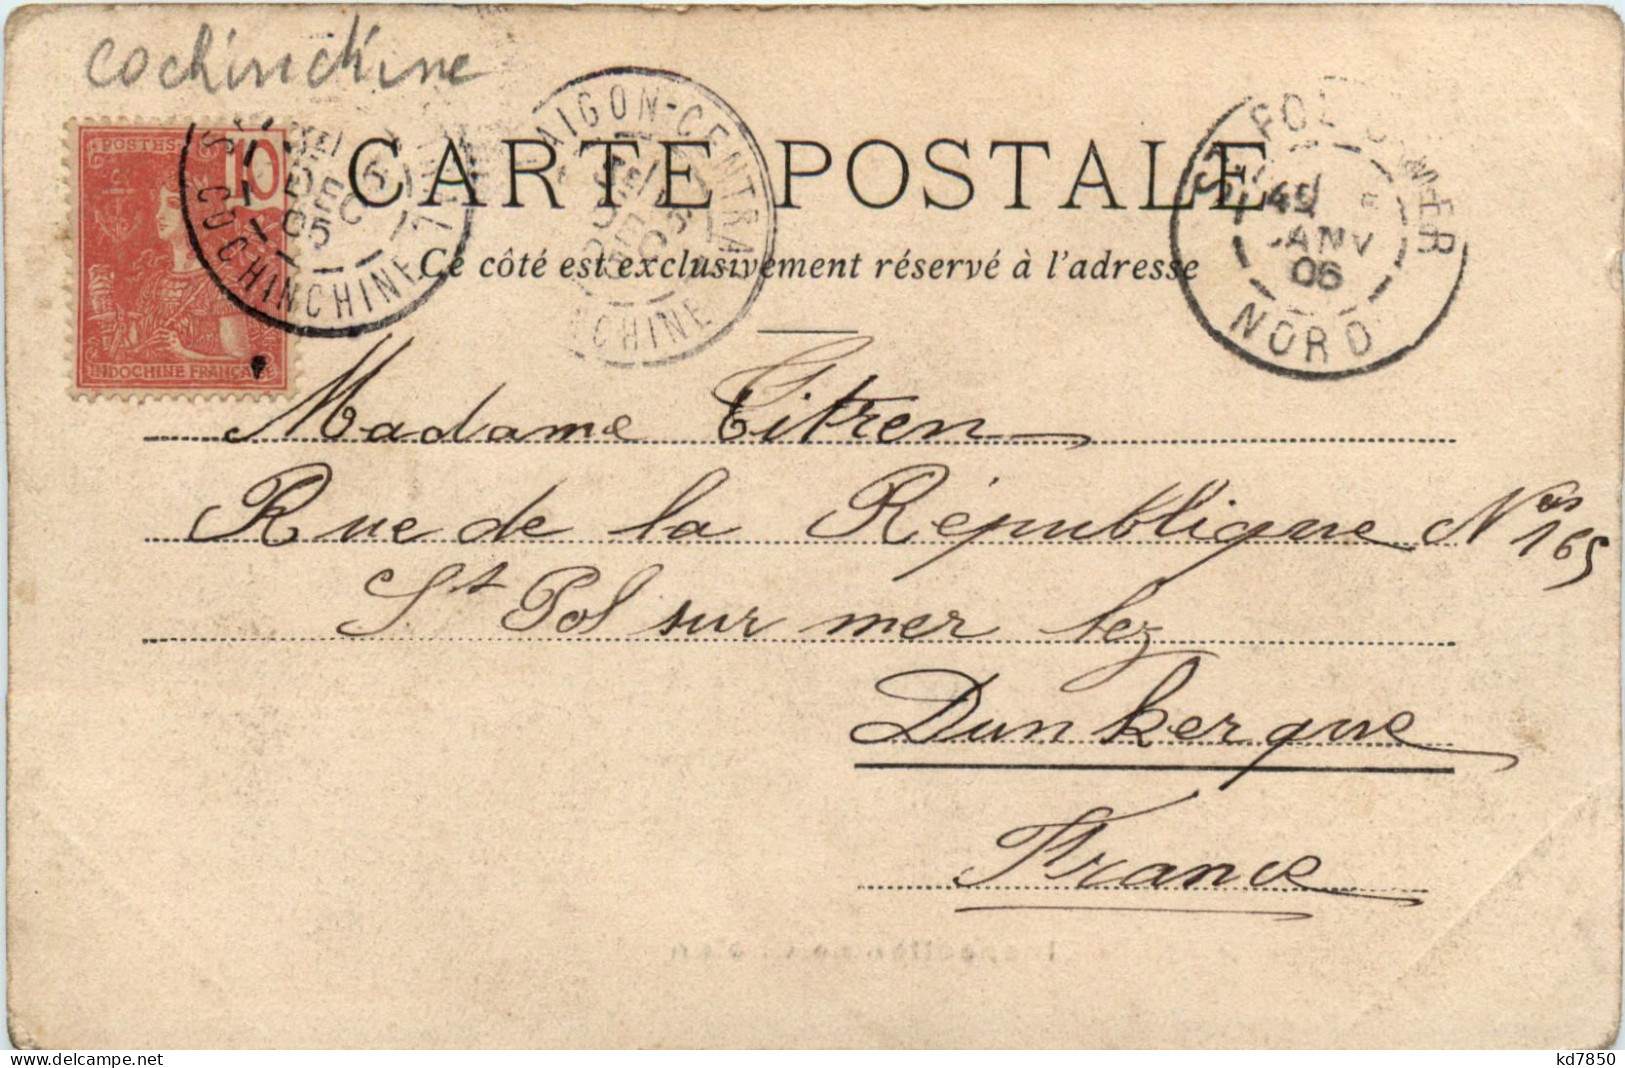 cochinchine
POSTES 10
INDOCHINE FRANÇAISE
COCHINCHINE
DEC
05
AIGON-CENTRA
DEC
05
CHINE
POL
MER
JANV
06
NORD
CARTE POSTALE
Ce côté est exclusivement réservé à l'adresse
Madame Titren
Rue de la République Nos 165
St Pol sur mer lez
Dunkerque
France
delcampe.net
kd7850